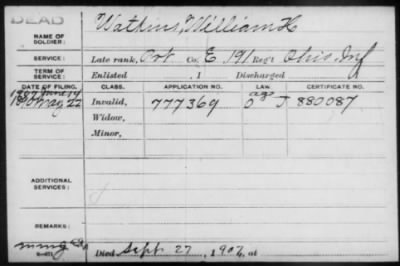 DEAD
NAME OF SOLDIER: Watkins, William H
SERVICE: Late rank, Pvt Co. E 191 Reg't Ohio Inf
TERM OF SERVICE: Enlisted , 1 Discharged
DATE OF FILING. CLASS. APPLICATION NO. LAW. CERTIFICATE NO.
1887 June 14
1890 May 22 Invalid, 777369 J 880087
Widow,
Minor,
ADDITIONAL SERVICES:
REMARKS:
Died Sept. 27, 1902, at